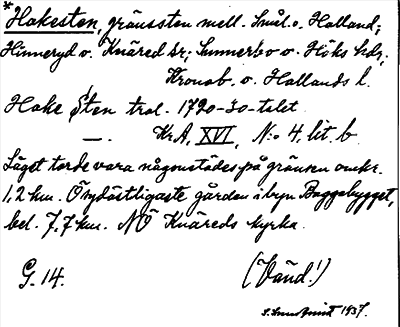 *Hakesten, gränssten mell. Smål. o. Halland;
Hinneryd o. Knäred sr; Sunnerbo o. Höks hdr;
Kronob. o. Hallands l.
Hake Sten trol. 1720-30-talet.
—. Kr.A, XVI, N:o 4, lit. b
Läget torde vara någonstädes på gränsen omkr.
1,2 km. Ö sydöstligaste gården i byn Baggabygget,
bel. 7,7 km. NÖ Knäreds kyrka.
G. 14. (Vänd!)
1937.